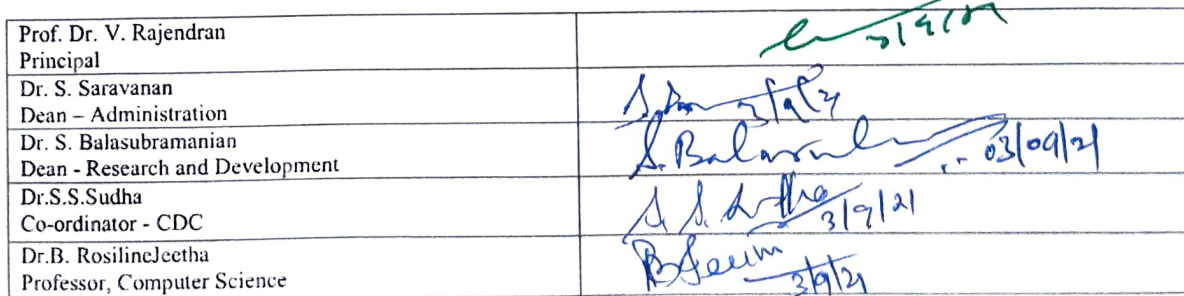 Prof. Dr. V. Rajendran
Principal
3/9/21
Dr. S. Saravanan
Dean – Administration
3/9/21
Dr. S. Balasubramanian
Dean - Research and Development
S. Balasub
03/09/21
Dr.S.S.Sudha
Co-ordinator - CDC
S. S. Sudha
3/9/21
Dr.B. RosilineJeetha
Professor, Computer Science
3/9/21